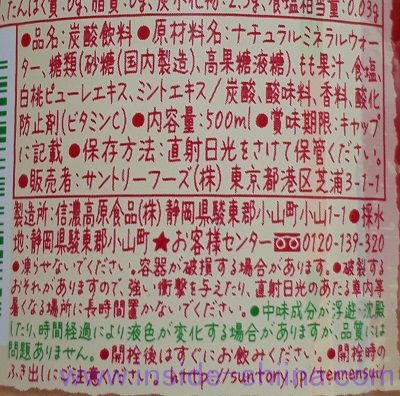 、たんぱく質:0g、脂質:0g、炭水化物:2.3g、食塩相当量:0.03g
●品名:炭酸飲料●原材料名:ナチュラルミネラルウォー
ター、糖類(砂糖(国内製造)、高果糖液糖)、もも果汁、食塩、
白桃ピューレエキス、ミントエキス/炭酸、酸味料、香料、酸化
防止剤(ビタミンC)●内容量:500ml●賞味期限:キャップ
に記載●保存方法:直射日光をさけて保管ください。
●販売者:サントリーフーズ(株)東京都港区芝浦3-1-1
製造所:信濃高原食品(株)静岡県駿東郡小山町小山1-1●採水
地:静岡県駿東郡小山町★お客様センター 0120-139-320
●凍らせないでください。容器が破損する場合があります。●破裂する
おそれがありますので、強い衝撃を与えたり、直射日光のあたる車内等
暑くなる場所に長時間置かないでください。●中味成分が浮遊・沈殿
したり、時間経過により液色が変化する場合がありますが、品質には
問題ありません。●開栓後はすぐにお飲みください。●開栓時の
ふき出しにご注意ください。http://suntory.jp/tennensui